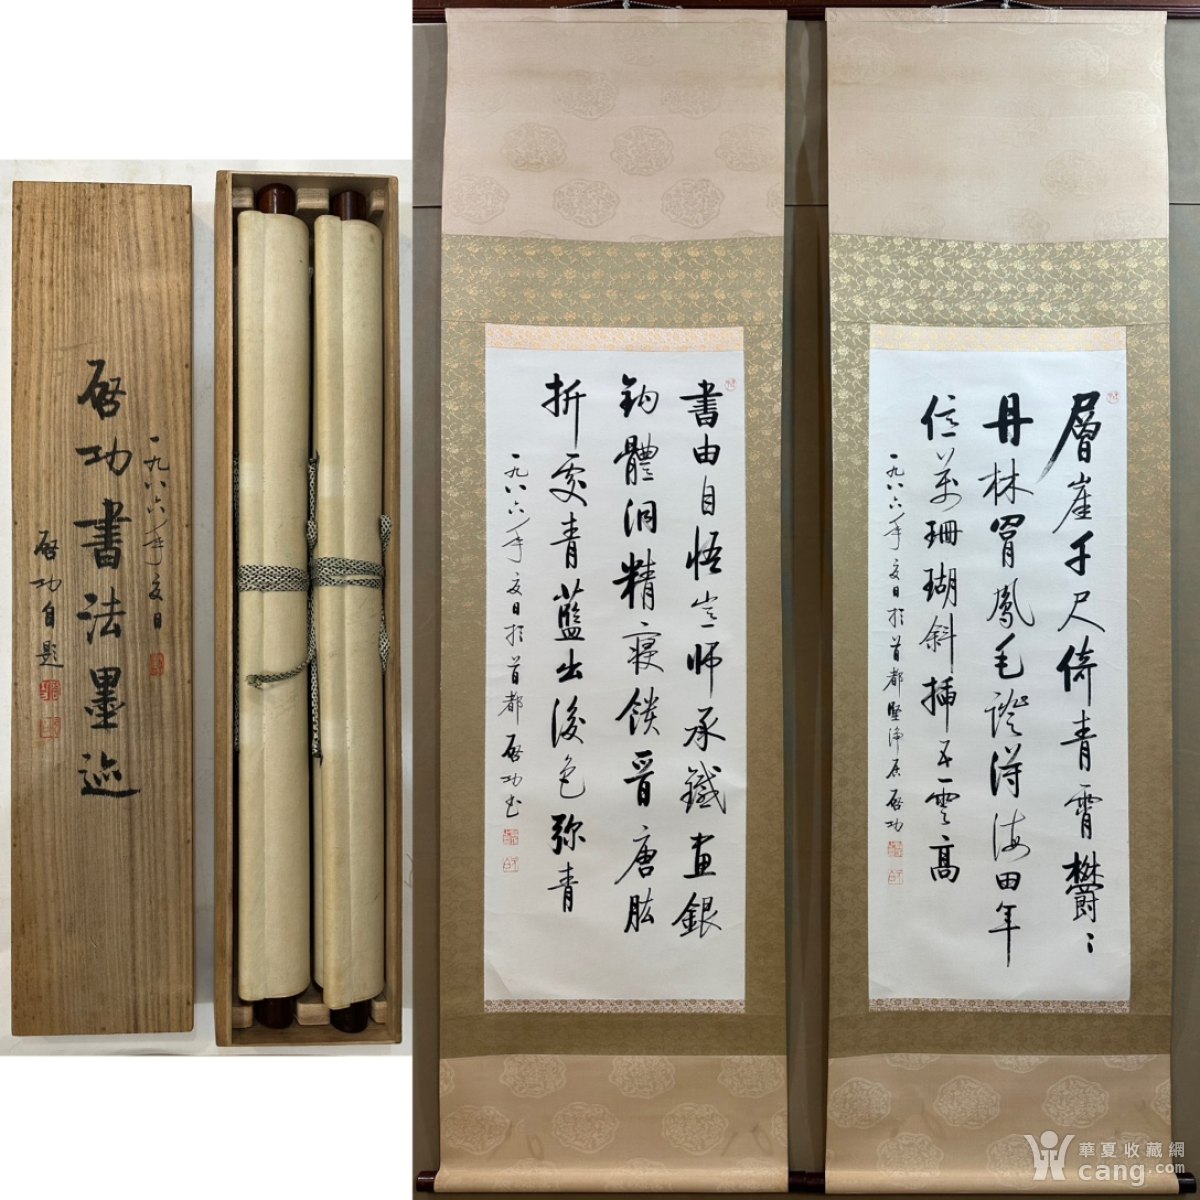 一九八六年夏日
啓功書法墨迹
啓功自題
書由自悟豈师承鐵画銀
鈎體洞精寢饋晋唐肱
折處青藍出後色弥青
一九八六年夏日於首都 啓功书
層崖千尺倚青霄欝〻
丹林罥鳳毛證得海田年
億萬珊瑚斜插五雲高
一九八六年夏日於首都堅淨居啓功
華夏收藏網
cang.com